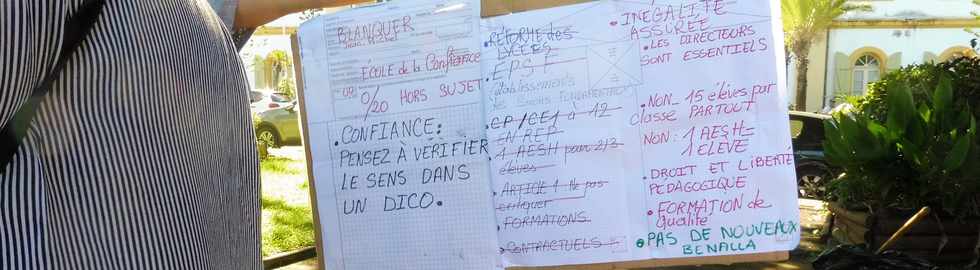 BLANQUER
Jean-Michel
ÉCOLE de la Confiance
0/20 HORS SUJET
• CONFIANCE:
PENSEZ À VÉRIFIER
LE SENS DANS
UN DICO.
• RÉFORME des
LYCÉES
• EPSF
Établissements
des Savoirs FONDAMENTAUX
• CP/CE1 à 12
EN REP
• 1 AESH pour 2/3
élèves
• ARTICLE 1 Ne pas
critiquer
• FORMATIONS
• CONTRACTUELS
• INÉGALITÉ
ASSURÉE
• LES DIRECTEURS
SONT ESSENTIELS
• NON_ 15 élèves par
classe PARTOUT
NON: 1 AESH=
1 ÉLÈVE
• DROIT ET LIBERTÉ
PÉDAGOGIQUE
• FORMATION de
Qualité
• PAS DE NOUVEAUX
BENALLA